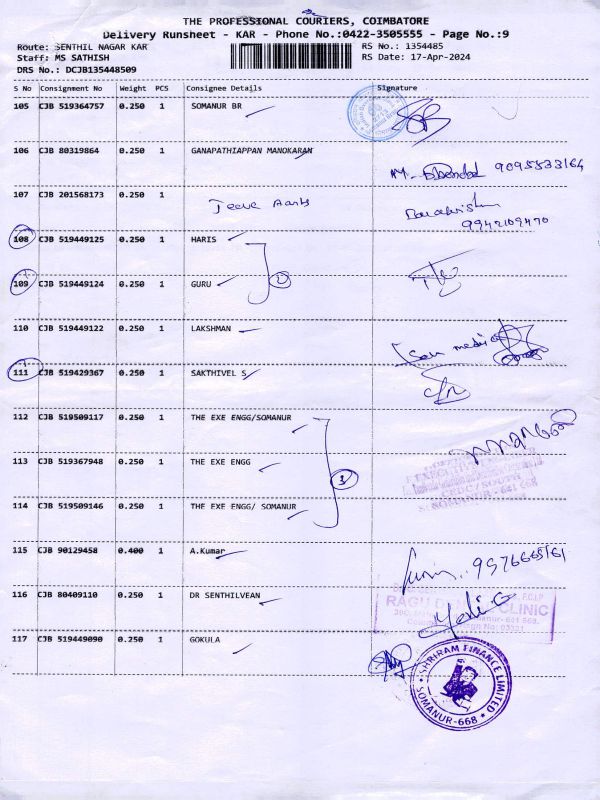 THE PROFESSIONAL COURIERS, COIMBATORE
Delivery Runsheet - KAR - Phone No.:0422-3505555 - Page No.:9
Route: SENTHIL NAGAR KAR
RS No.: 1354485
Staff: MS SATHISH
RS Date: 17-Apr-2024
DRS No.: DCJB135448509
S No Consignment No Weight PCS Consignee Details Signature
105 CJB 519364757 0.250 1 SOMANUR BR
106 CJB 80319864 0.250 1 GANAPATHIAPPAN MANOKARAN
107 CJB 201568173 0.250 1 Jeeva Aants
108 CJB 519449125 0.250 1 HARIS
109 CJB 519449124 0.250 1 GURU
110 CJB 519449122 0.250 1 LAKSHMAN
111 CJB 519429367 0.250 1 SAKTHIVEL S
112 CJB 519509117 0.250 1 THE EXE ENGG/SOMANUR
113 CJB 519367948 0.250 1 THE EXE ENGG
114 CJB 519509146 0.250 1 THE EXE ENGG/ SOMANUR
SOMANUR- 641 668
115 CJB 90129458 0.400 1 A.Kumar
116 CJB 80409110 0.250 1 DR SENTHILVEAN
RAGU CLINIC
117 CJB 519449090 0.250 1 GOKULA
SHRIRAM FINANCE LIMITED
SOMANUR-668